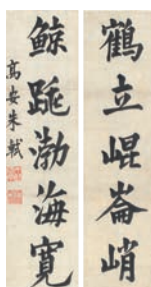 鶴立崐崙峭
鯨跳渤海寬
高安朱軾